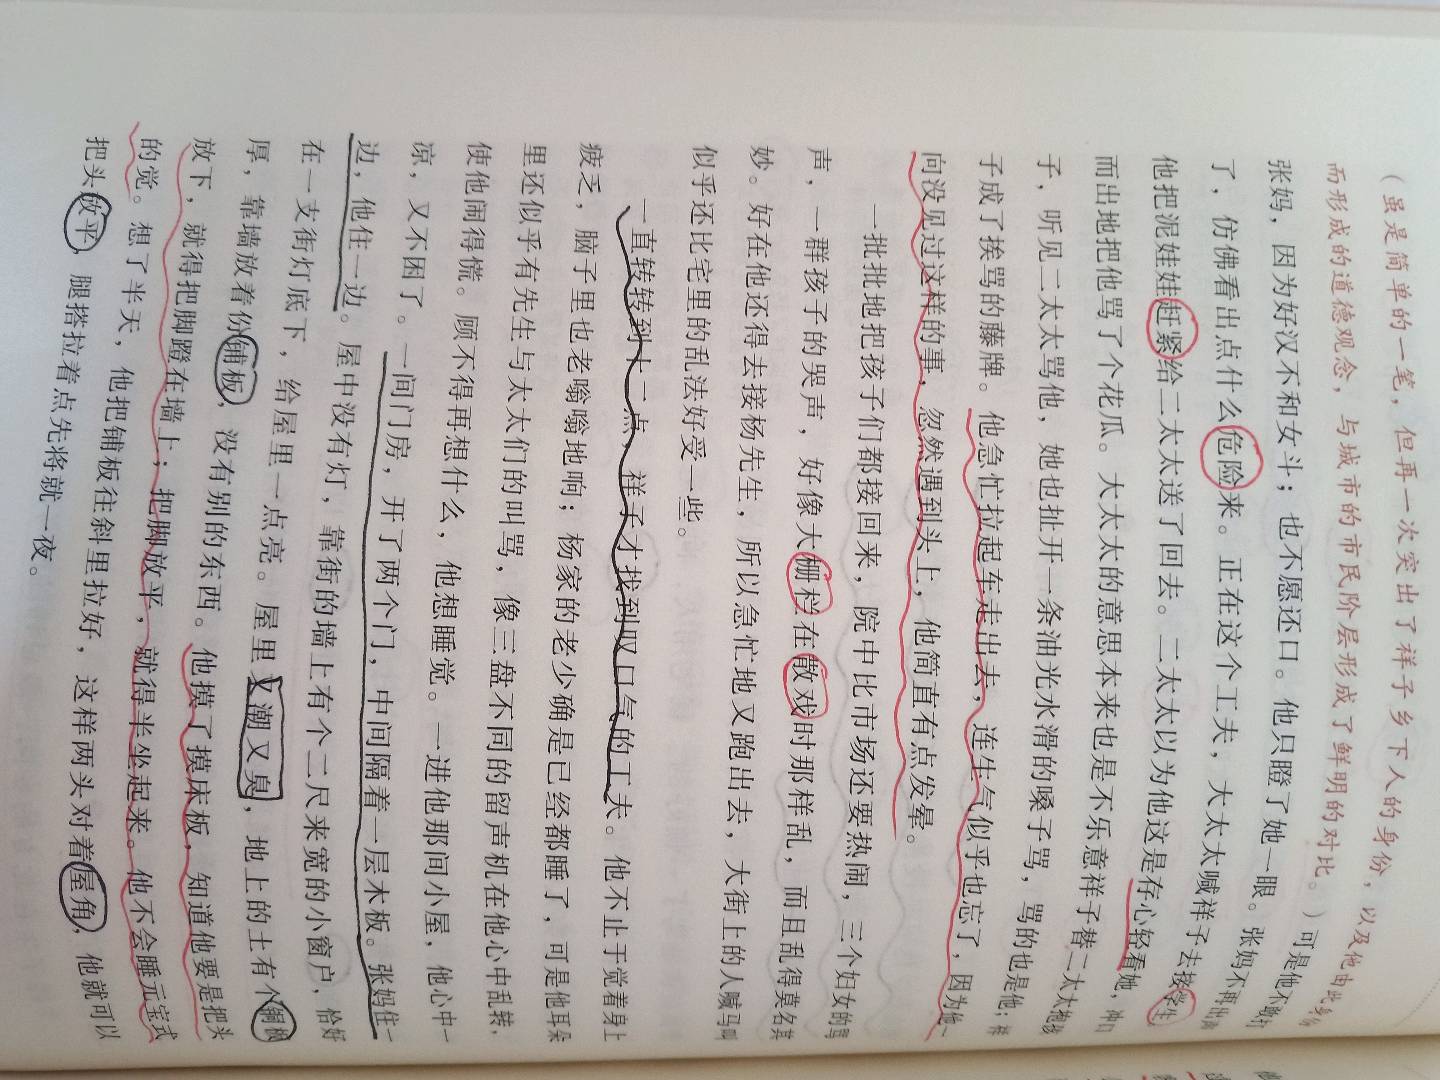 （虽是简单的一笔，但再一次突出了祥子乡下人的身份，以及他由此身份
而形成的道德观念，与城市的市民阶层形成了鲜明的对比。）可是他不敢打
张妈，因为好汉不和女斗；也不愿还口。他只瞪了她一眼。张妈不再出声
了，仿佛看出点什么危险来。正在这个工夫，大太太喊祥子去接学生，
他把泥娃娃赶紧给二太太送了回去。二太太以为他这是存心轻看她，冲口
而出地把他骂了个花瓜。大太太的意思本来也是不乐意祥子替二太太抱孩
子，听见二太太骂他，她也扯开一条油光水滑的嗓子骂，骂的也是他；祥
子成了挨骂的藤牌。他急忙拉起车走出去，连生气似乎也忘了，因为他一
向没见过这样的事，忽然遇到头上，他简直有点发晕。
一批批地把孩子们都接回来，院中比市场还要热闹，三个妇女的骂
声，一群孩子的哭声，好像大栅栏在散戏时那样乱，而且乱得莫名其
妙。好在他还得去接杨先生，所以急忙地又跑出去，大街上的人喊马叫
似乎还比宅里的乱法好受一些。
一直转转到十二点，祥子才找到叹口气的工夫。他不止于觉着身上
疲乏，脑子里也老嗡嗡地响；杨家的老少确是已经都睡了，可是他耳朵
里还似乎有先生与太太们的叫骂，像三盘不同的留声机在他心中乱转，
使他闹得慌。顾不得再想什么，他想睡觉。一进他那间小屋，他心中一
凉，又不困了。一间门房，开了两个门，中间隔着一层木板。张妈住一
边，他住一边。屋中没有灯，靠街的墙上有个二尺来宽的小窗户，恰好
在一支街灯底下，给屋里一点亮。屋里又潮又臭，地上的土有个铜板
厚，靠墙放着份铺板，没有别的东西。他摸了摸床板，知道他要是把头
放下，就得把脚蹬在墙上；把脚放平，就得半坐起来。他不会睡元宝式
的觉。想了半天，他把铺板往斜里拉好，这样两头对着屋角，他就可以
把头放平，腿搭拉着点先将就一夜。